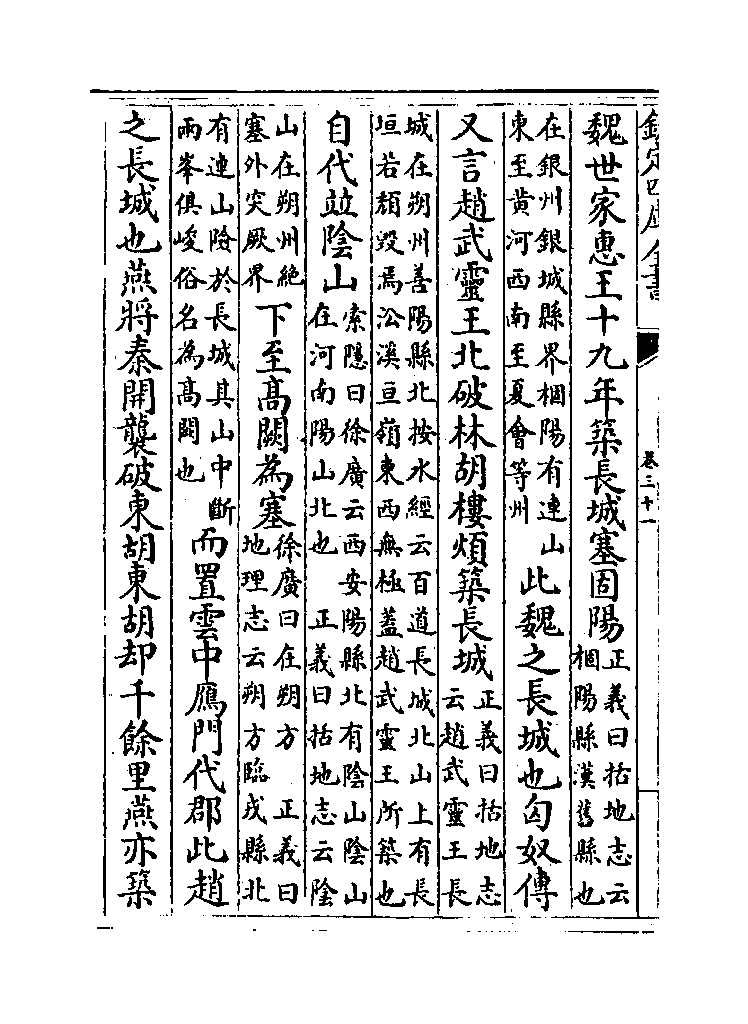 欽定四庫全書
卷三十一
魏世家惠王十九年築長城塞固陽正義曰括地志云棝陽縣漢舊縣也
在銀州銀城縣界棝陽有連山東至黄河西南至夏會等州此魏之長城也匈奴傳
又言趙武靈王北破林胡樓煩築長城正義曰括地志云趙武靈王長
城在朔州善陽縣北按水經云百道長城北山上有長垣若頽毁焉沿溪亘嶺東西無極蓋趙武靈王所築也
自代竝陰山索隱曰徐廣云西安陽縣北有陰山陰山在河南陽山北也 正義曰括地志云陰
山在朔州絶塞外突厥界下至髙闕為塞徐廣曰在朔方 正義曰地理志云朔方臨戎縣北
有連山險於長城其山中斷兩峯俱峻俗名為髙闕也而置雲中鴈門代郡此趙
之長城也燕將秦開襲破東胡東胡却千餘里燕亦築